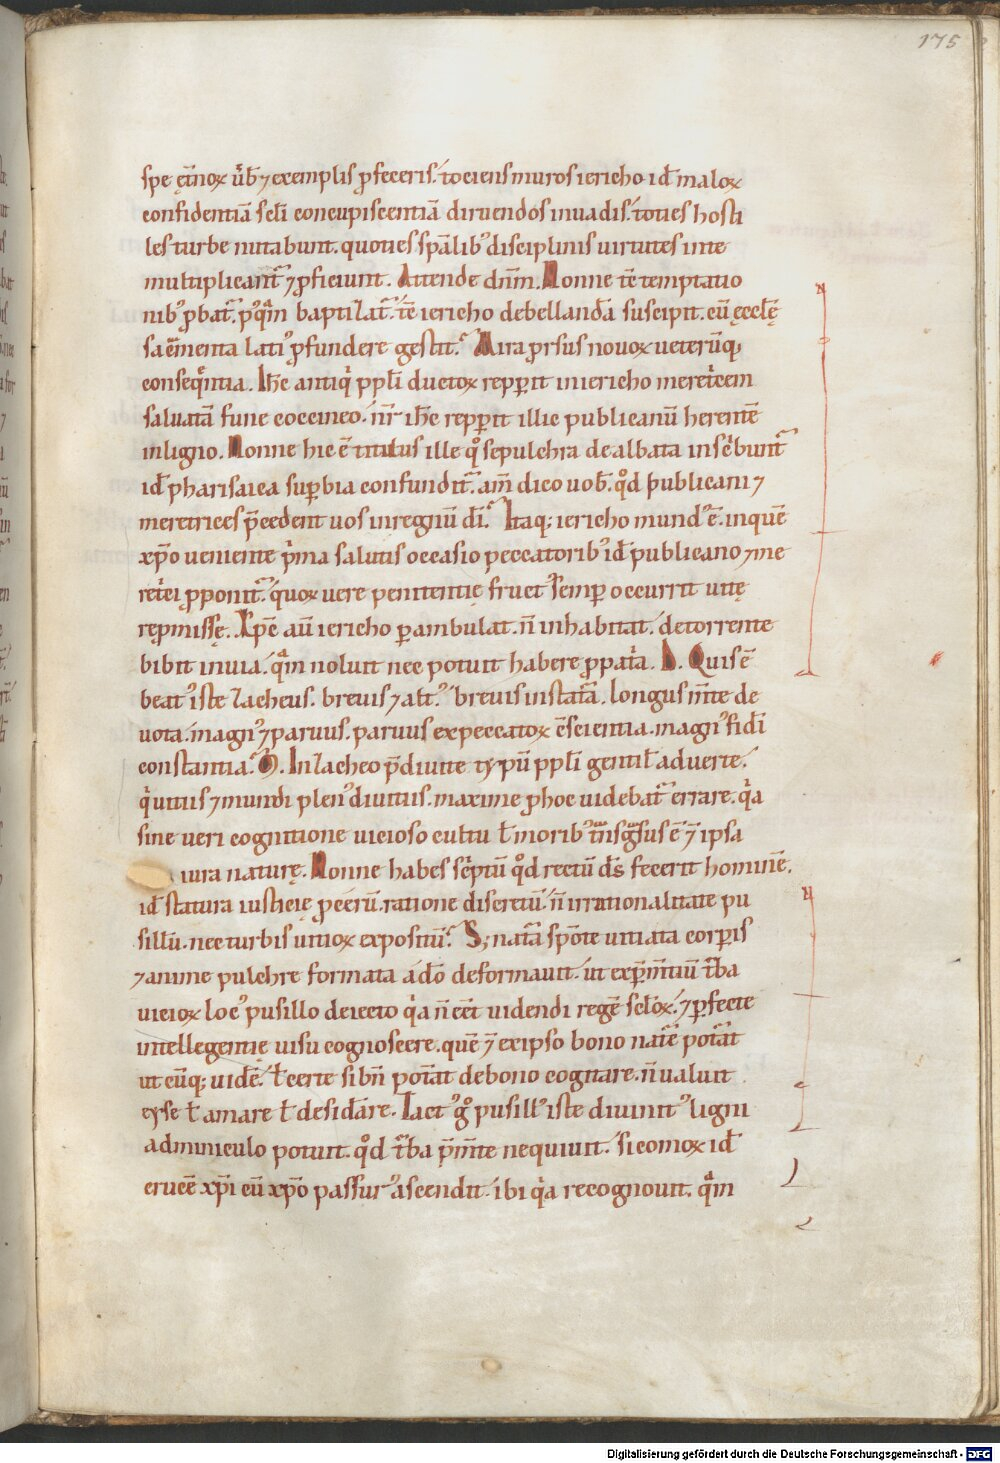 175
spe ęt̄noꝝ ūb̄ ⁊ exemplis ꝓfeceris. tociens muros iericho id̄ maloꝝ
confidentiā scl̄i concupiscentiā diruendos inuadis. toties hosti
les turbe nutabunt. quoties sp̄alib᷒ disciplinis uirtutes in te
multiplicant᷑ ⁊ ꝓficiunt. Attende dn̄m. Nonne tē temptatio
nib᷒ ꝓbat᷑. p᷒ qͣm baptizat᷑. tē iericho debellandā suscipit. cū ęcclę̄
sacm̄enta lati᷒ ꝓfundere gestit. Mira ꝓrsus nouoꝝ ueterūq;
conseqn̄tia. Ih̄c antiqͥ ppl̄i ductoꝝ repperit in iericho meretͥcem
saluatā fune coccineo. nr̄ ih̄c repperit illic publicanū herentē
in ligno. Nonne hic ē titulus ille qͦ sepulchra de albata inscͥbunt᷑
id̄ pharisaica suꝑbia confundit᷑. am̄ dico uob̄. qͦd publicani ⁊
meretrices p̄cedent uos in regnū dī. Itaq; iericho mund᷒ ē. in quē
xp̄o ueniente pͥma salutis occasio peccatorib᷒ id̄ publicano ⁊ me
retͥci ꝓponit᷑. quoꝝ uere penitentię fruct᷒ semꝑ occurrit uitę
rep̨missę. Xp̄c aū iericho ꝑambulat. n̄ inhabitat. de torrente
bibit in uia. qͣm noluit nec potuit habere ꝓpatͥa. D. Quis ē
beat᷒ iste zacheus. breuis ⁊ alt᷒. breuis in statā. longus m̄te de
uota. magn᷒ ⁊ paruus. paruus ex peccatoꝝ cscientia. magn᷒ fidī
constantia. M. In zacheo p̄diuite typū ppl̄i gentil̄ aduerte.
qͥ uitiis ⁊ mundi plen᷒ diuitiis. maxime ꝓhoc uidebat᷑ errare. qͥa
sine ueri cognitione uicioso cultu ł morib᷒ tͣnsgͣsus ē ⁊̄ ipsa
iura naturę. Nonne habes scͥptū qͦd rectū dn̄s fecerit hominē.
id̄ statura iusticię ꝓcerū. ratione discretū. n̄ irrationalitate pu
sillū. nec turbis uitioꝝ expositū. S; natā sponte uitiata corꝑis
⁊ anime pulchre formata a dō deformauit. ut exꝑim̄tiū tͬba
uicioꝝ loc᷒ pusillo deiecto qͥa n̄ eēt uidendi regē scl̄oꝝ. ⁊ ꝑfecte
intellegentię uisu cognoscere. quē ⁊̄ ex ipso bono natͣē potͣat
ut cūq; uidē. ł certe sibn̄ potͣat de bono cogitare. n̄ ualuit
eyse ł amare ł desidare. Iact᷒ gͦ pusill᷒ iste diuinit᷒ ligni
adminiculo potuit. qͦd tͬba p̄m̄te nequiuit. sicomoꝝ id̄
crucē xp̄i cū xp̄o passur᷒ ascendit. ibi qͥa recognouit. qͣm
Digitalisierung gefördert durch die Deutsche Forschungsgemeinschaft - DFG